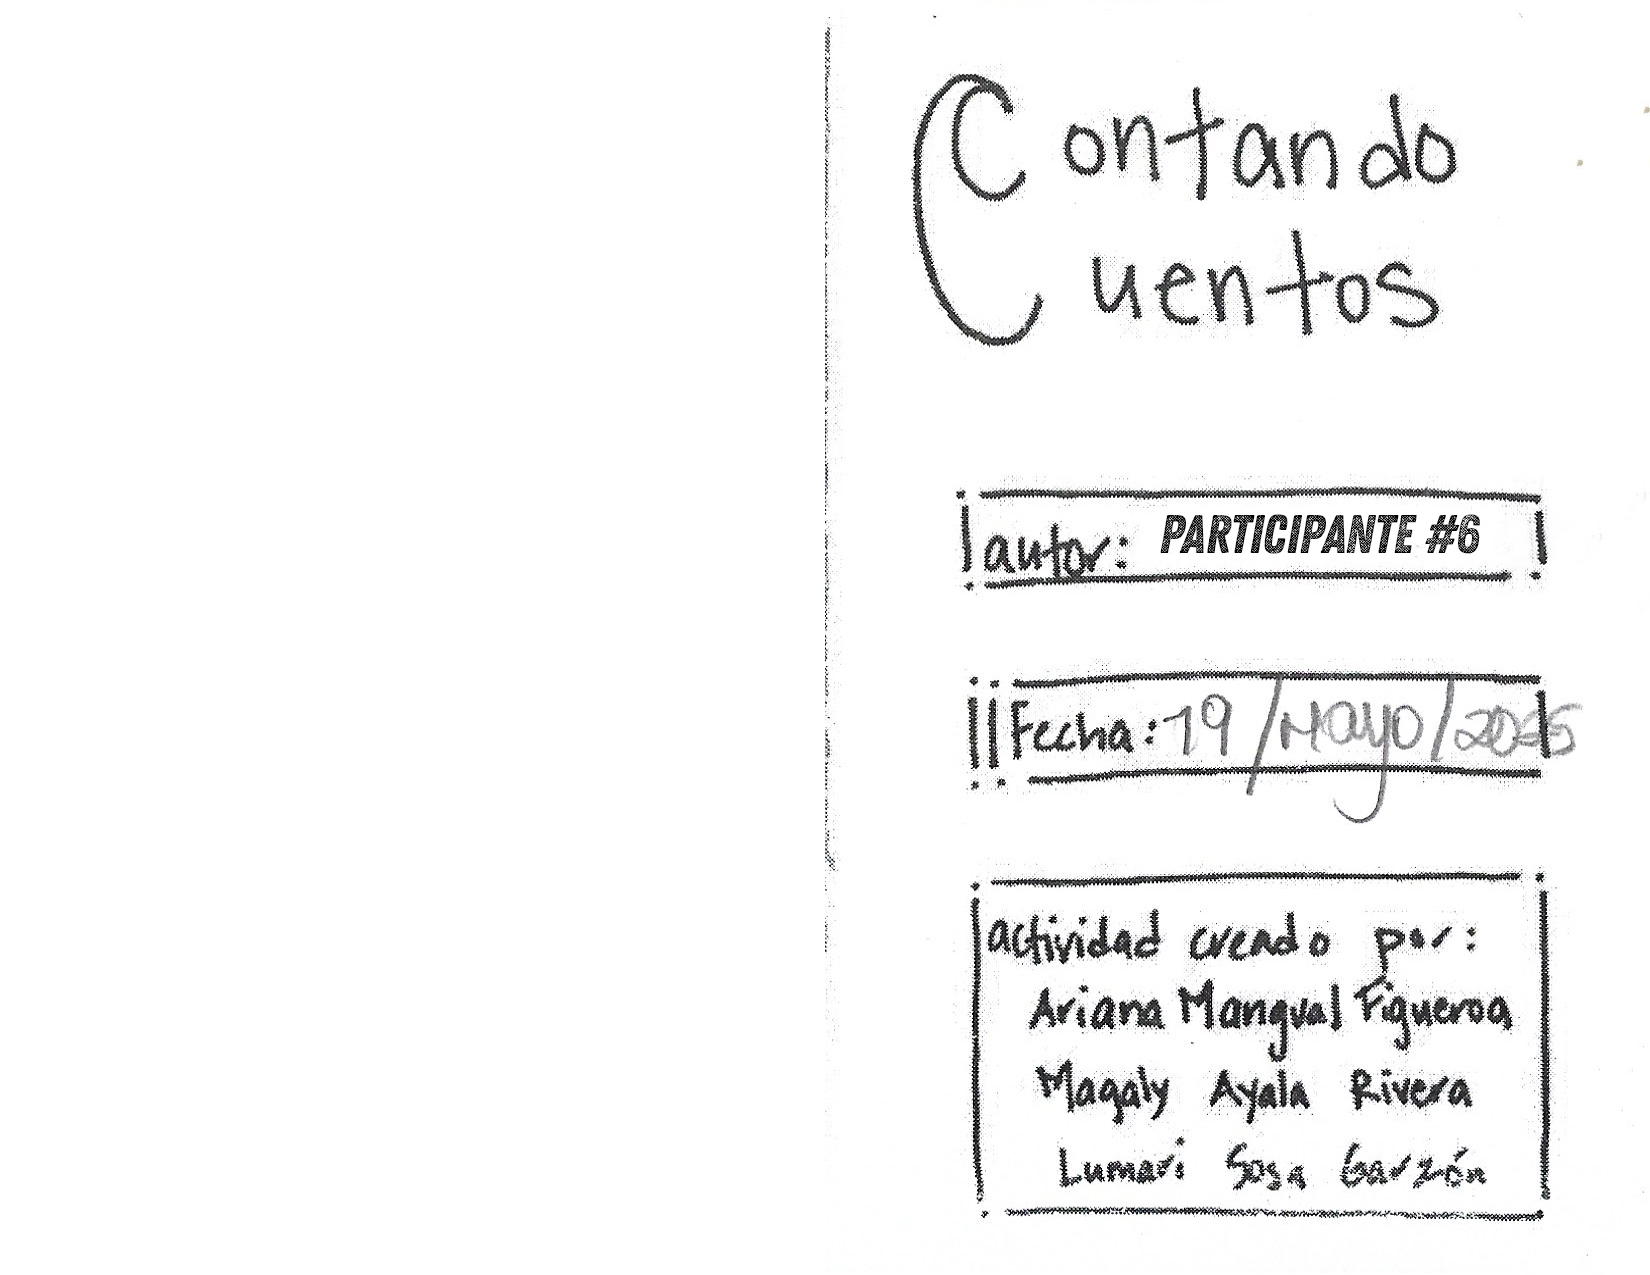 Contando
Cuentos
autor: PARTICIPANTE #6
Fecha: 19/Mayo/
actividad creado por:
Ariana Mangual Figueroa
Magaly Ayala Rivera
Lumari Sosa Garzón